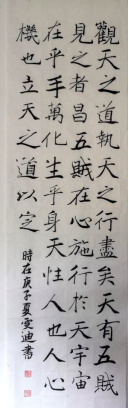 觀天之道執天之行盡矣天有五賊
見之者昌五賊在心施行於天宇宙
在乎手萬化生乎身天性人也人心
機也立天之道以定
時在庚子夏雯迪書